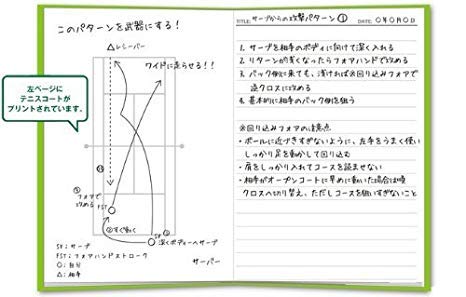 このパターンを武器にする！
△レシーバー
ワイドに走らせる！！
左ページに
テニスコートが
プリントされています.
③フォアで
攻める
FST
②すぐ動く
SV
①
深くボディーへサーブ
SV：サーブ
FST：フォアハンドストローク
○：自分
△：相手
サーバー
TITLE: サーブからの攻撃パターン①
DATE:
1. サーブを相手のボディに向けて深く入れる
2. リターンが甘くなったらフォアハンドで攻める
3. バック側に来ても、浅ければ※回り込みフォアで
逆クロスに攻める
4. 基本的に相手のバック側を狙う
※回り込みフォアの注意点
・ボールに近づきすぎないように、左手をうまく使い
しっかり足を動かして回り込む
・肩をしっかり入れてコースを読ませない
・相手がオープンコートに早めに動いた場合は順
クロスへ切り替え、ただしコースを狙いすぎないこと